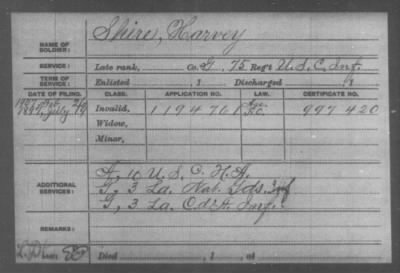 NAME OF SOLDIER: Shires, Harvey
SERVICE: Late rank, Co. G, 75 Reg't U.S.C. Inf.
TERM OF SERVICE: Enlisted , 1 Discharged , 1
DATE OF FILING. CLASS. APPLICATION NO. LAW. CERTIFICATE NO.
1897 July 19 Invalid, 1194761 997420
Widow,
Minor,
ADDITIONAL SERVICES: A, 10 U.S.C.H.A.
G, 3 La. Nat. Gds. Inf
G, 3 La. C.d'A. Inf.
REMARKS:
Died , 1 , at